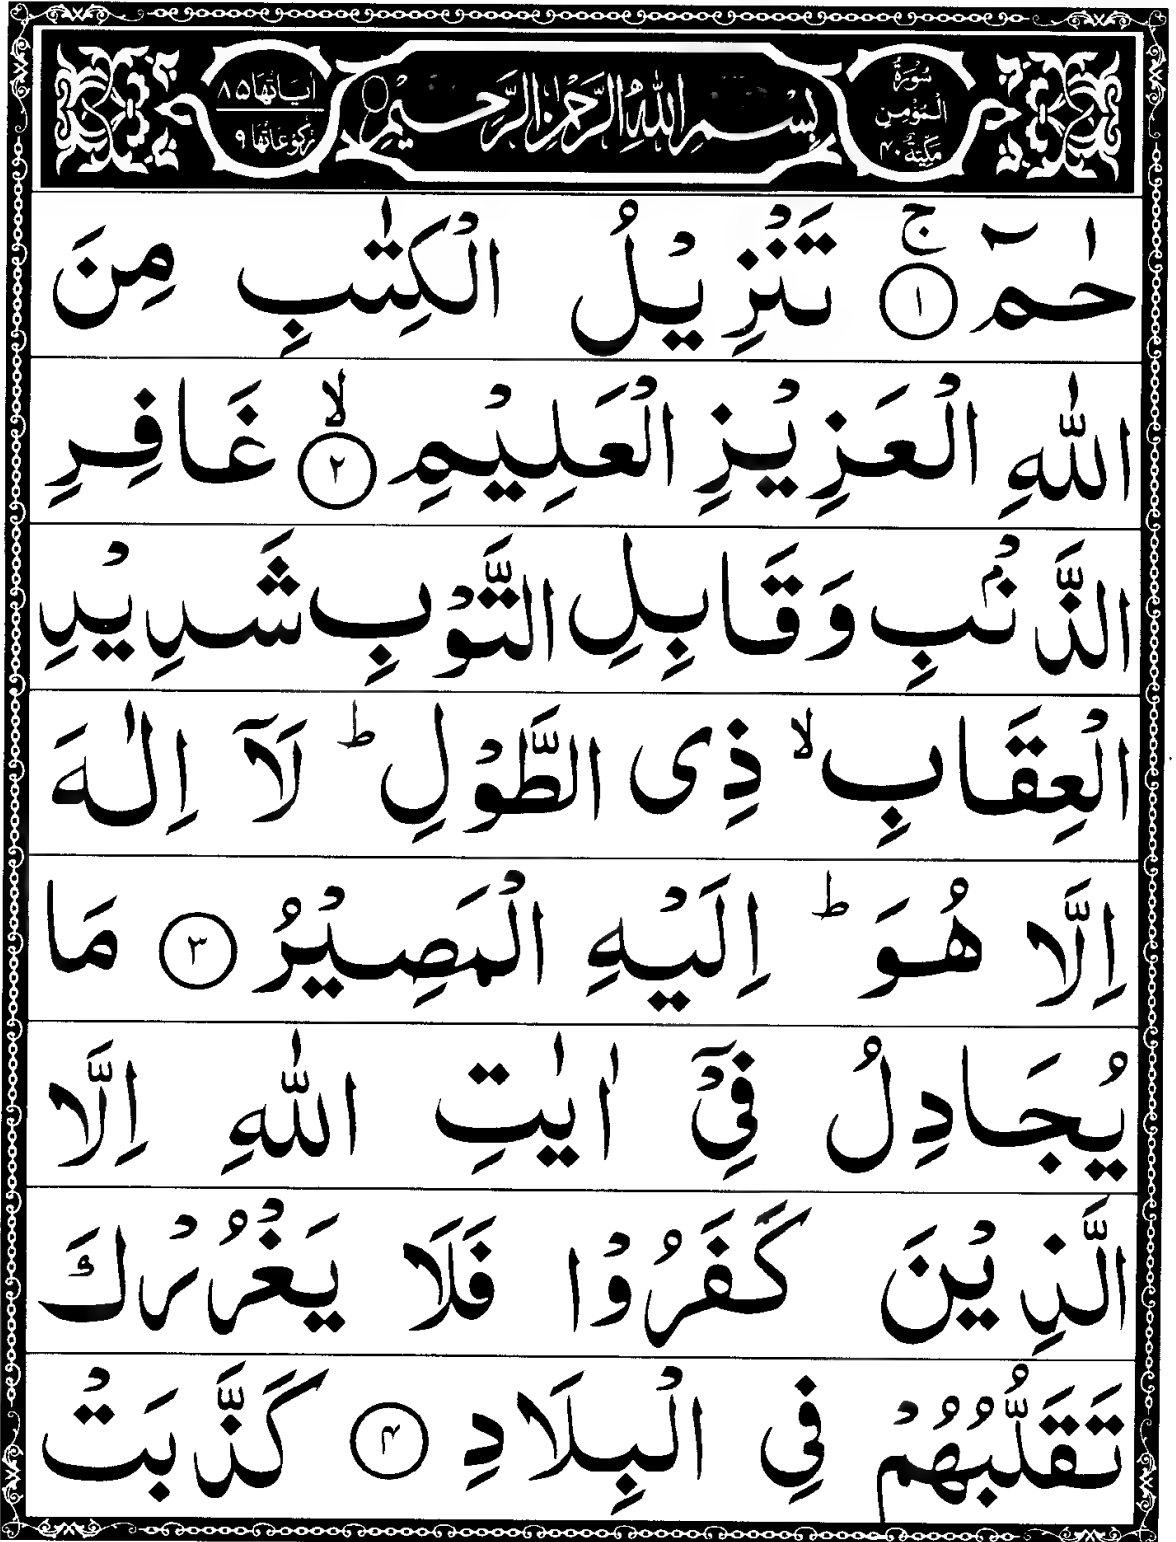 سُوْرَةُ
الْمُؤْمِنِ
مَكِّيَّةٌ ۴۰
بِسْمِ اللّٰهِ الرَّحْمٰنِ الرَّحِيْمِ
اٰيَاتُهَا ۸۵
رُكُوْعَاتُهَا ۹
حٰمٓ ۚ ۱ تَنْزِيْلُ الْكِتٰبِ مِنَ
اللّٰهِ الْعَزِيْزِ الْعَلِيْمِ ۙ ۲ غَافِرِ
الذَّنْۢبِ وَقَابِلِ التَّوْبِ شَدِيْدِ
الْعِقَابِ ۙ ذِی الطَّوْلِ ؕ لَاۤ اِلٰهَ
اِلَّا هُوَ ؕ اِلَيْهِ الْمَصِيْرُ ۳ مَا
يُجَادِلُ فِیْۤ اٰيٰتِ اللّٰهِ اِلَّا
الَّذِيْنَ كَفَرُوْا فَلَا يَغْرُرْكَ
تَقَلُّبُهُمْ فِی الْبِلَادِ ۴ كَذَّبَتْ